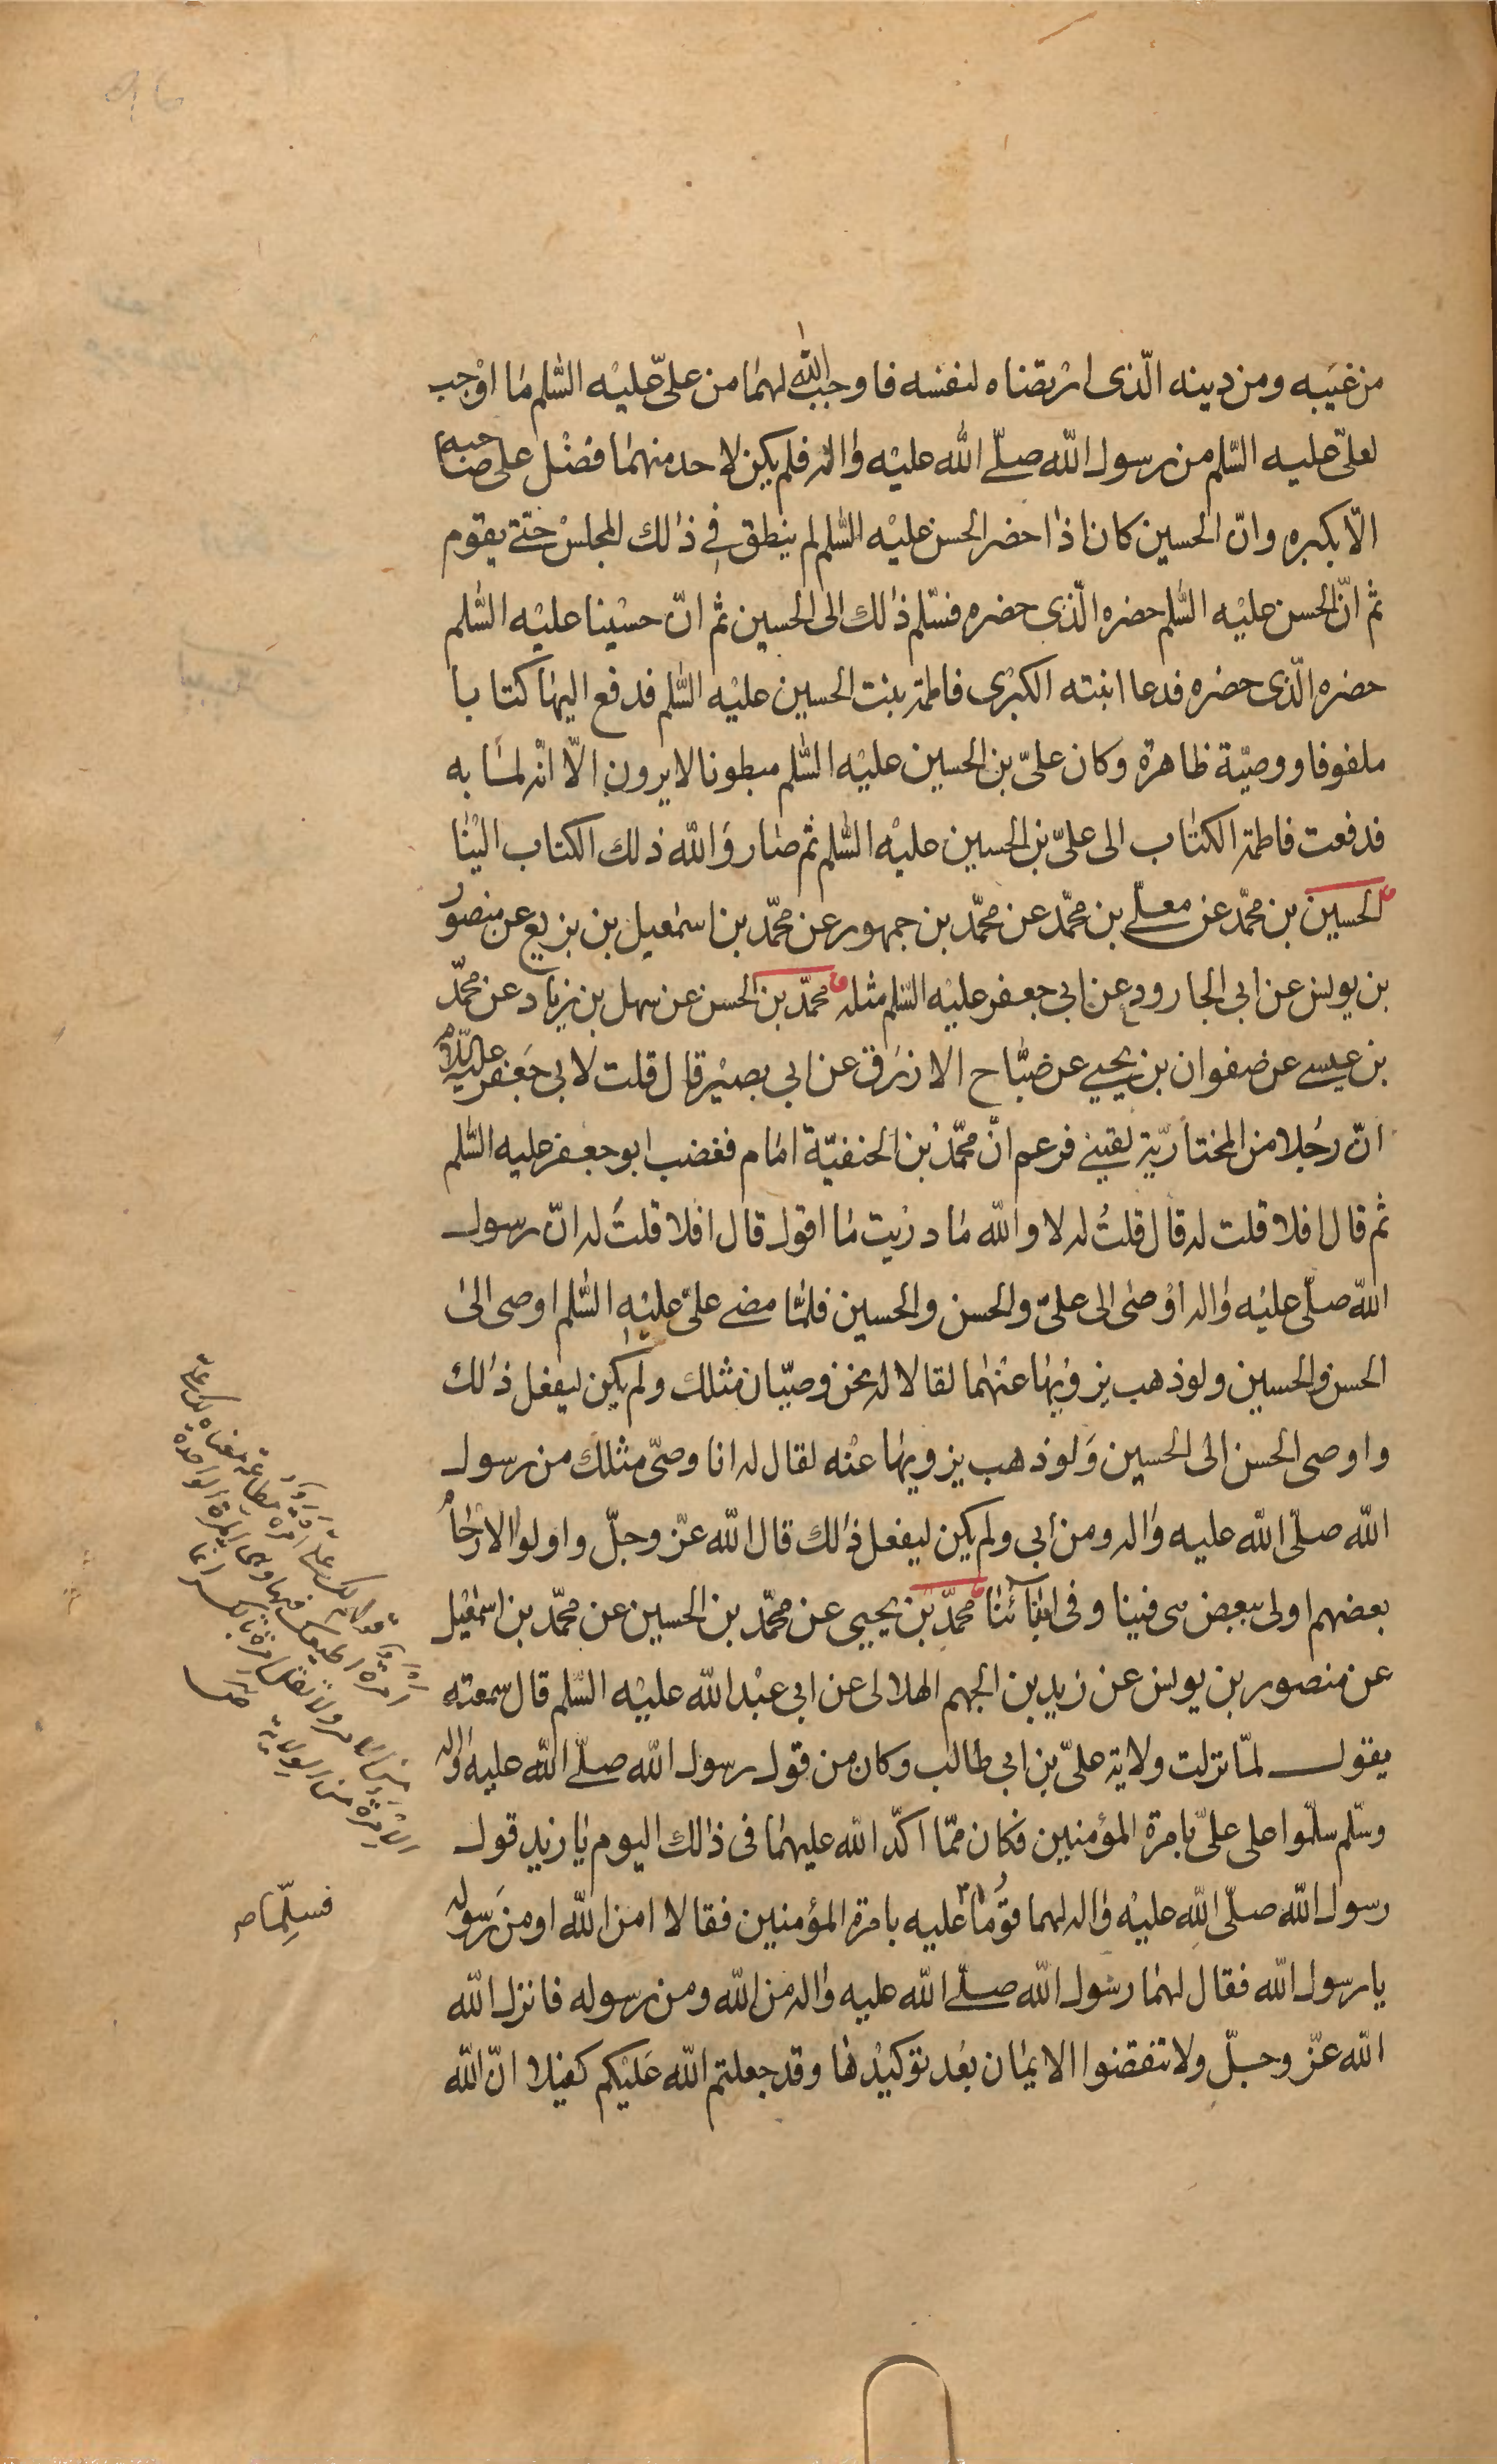 من غيبه ومن دينه الّذى ارتضاه لنفسه فاوجب الله لهما من علىّ عليه السّلم ما اوجب
لعلىّ عليه السّلم من رسول الله صلّى الله عليه واله فلم يكن لاحد منهما فضل على صاحبه
الّا بكبره وانّ الحسين كان اذا حضر الحسن عليه السّلم لم ينطق فى ذلك المجلس حتّى يقوم
ثم انّ الحسن عليه السّلم حضره الّذى حضره فسلّم ذلك الى الحسين ثم انّ حسينا عليه السّلم
حضره الّذى حضره فدعا ابنته الكبرى فاطمة بنت الحسين عليه السّلم فدفع اليها كتابا
ملفوفا ووصيّة ظاهرة وكان علىّ بن الحسين عليه السّلم مبطونا لا يرون الّا انّه لما به
فدفعت فاطمة الكتاب الى علىّ بن الحسين عليه السّلم ثم صار والله ذلك الكتاب الينا
الحسين بن محمّد عن معلّى بن محمّد عن محمّد بن جمهور عن محمّد بن اسمعيل بن بزيع عن منصور
بن يونس عن ابى الجارود عن ابى جعفر عليه السّلم مثله محمّد بن الحسن عن سهل بن زياد عن محمّد
بن عيسى عن صفوان بن يحيى عن صبّاح الازرق عن ابى بصير قال قلت لابى جعفر عليه السّلام
انّ رجلا من المختاريّة لقينى فزعم انّ محمّد بن الحنفيّة امام فغضب ابو جعفر عليه السّلم
ثم قال افلا قلت له قال قلت له لا والله ما دريت ما اقول قال افلا قلت له انّ رسول
الله صلّى عليه واله اوصى الى علىّ والحسن والحسين فلمّا مضى علىّ عليه السّلم اوصى الى
الحسن والحسين ولو ذهب يزويها عنهما لقالا له نحن وصيّان مثلك ولم يكن ليفعل ذلك
واوصى الحسن الى الحسين ولو ذهب يزويها عنه لقال له انا وصىّ مثلك من رسول
الله صلّى الله عليه واله ومن ابى ولم يكن ليفعل ذلك قال الله عزّ وجلّ واولوا الارحام
بعضهم اولى ببعض هى فينا وفى ابنائنا محمّد بن يحيى عن محمّد بن الحسين عن محمّد بن اسمعيل
عن منصور بن يونس عن زيد بن الجهم الهلالى عن ابى عبد الله عليه السّلم قال سمعته
يقول لمّا نزلت ولاية علىّ بن ابى طالب وكان من قول رسول الله صلّى الله عليه واله
وسلّم سلّموا على علىّ بامرة المؤمنين فكان ممّا اكّد الله عليهما فى ذلك اليوم يا زيد قول
رسول الله صلّى الله عليه واله لهما قوما عليه بامرة المؤمنين فقالا امن الله او من رسوله
يا رسول الله فقال لهما رسول الله صلّى الله عليه واله من الله ومن رسوله فانزل الله
الله عزّ وجلّ ولا تنقضوا الايمان بعد توكيدها وقد جعلتم الله عليكم كفيلا انّ الله
فسلّما ص